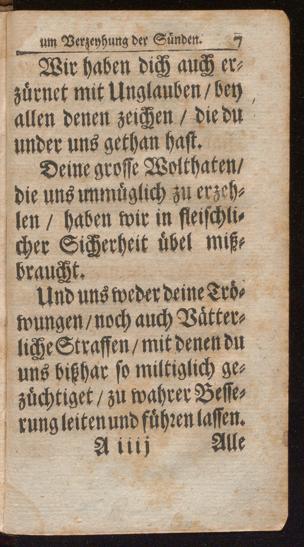 um Verzeyhung der Sünden. 7
Wir haben dich auch er⸗
zürnet mit Unglauben / bey
allen denen zeichen / die du
under uns gethan hast.
Deine grosse Wolthaten /
die uns unmüglich zu erzeh⸗
len / haben wir in fleischli⸗
cher Sicherheit übel miß⸗
braucht.
Und uns weder deine Trö⸗
wungen / noch auch Vätter⸗
liche Straffen / mit denen du
uns bißhar so miltiglich ge⸗
züchtiget / zu wahrer Besse⸗
rung leiten und führen lassen.
A iiij Alle